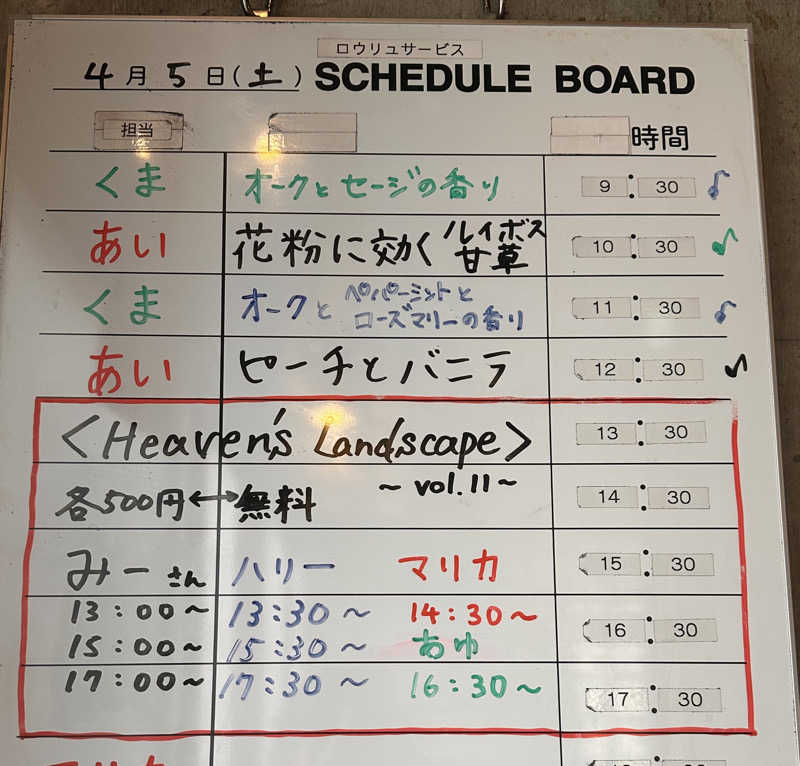 ロウリュサービス
4月5日(土) SCHEDULE BOARD
担当 時間
くま オークとセージの香り 9:30 ♪
あい 花粉に効く ルイボス 甘草 10:30 ♪
くま オークと ペパーミントと ローズマリーの香り 11:30 ♪
あい ピーチとバニラ 12:30 ♪
<Heaven's Landscape> 13:30
~vol.11~
各500円↔無料 14:30
みーさん ハリー マリカ 15:30
13:00~ 13:30~ 14:30~
16:30
15:00~ 15:30~ あゆ
17:00~ 17:30~ 16:30~
17:30